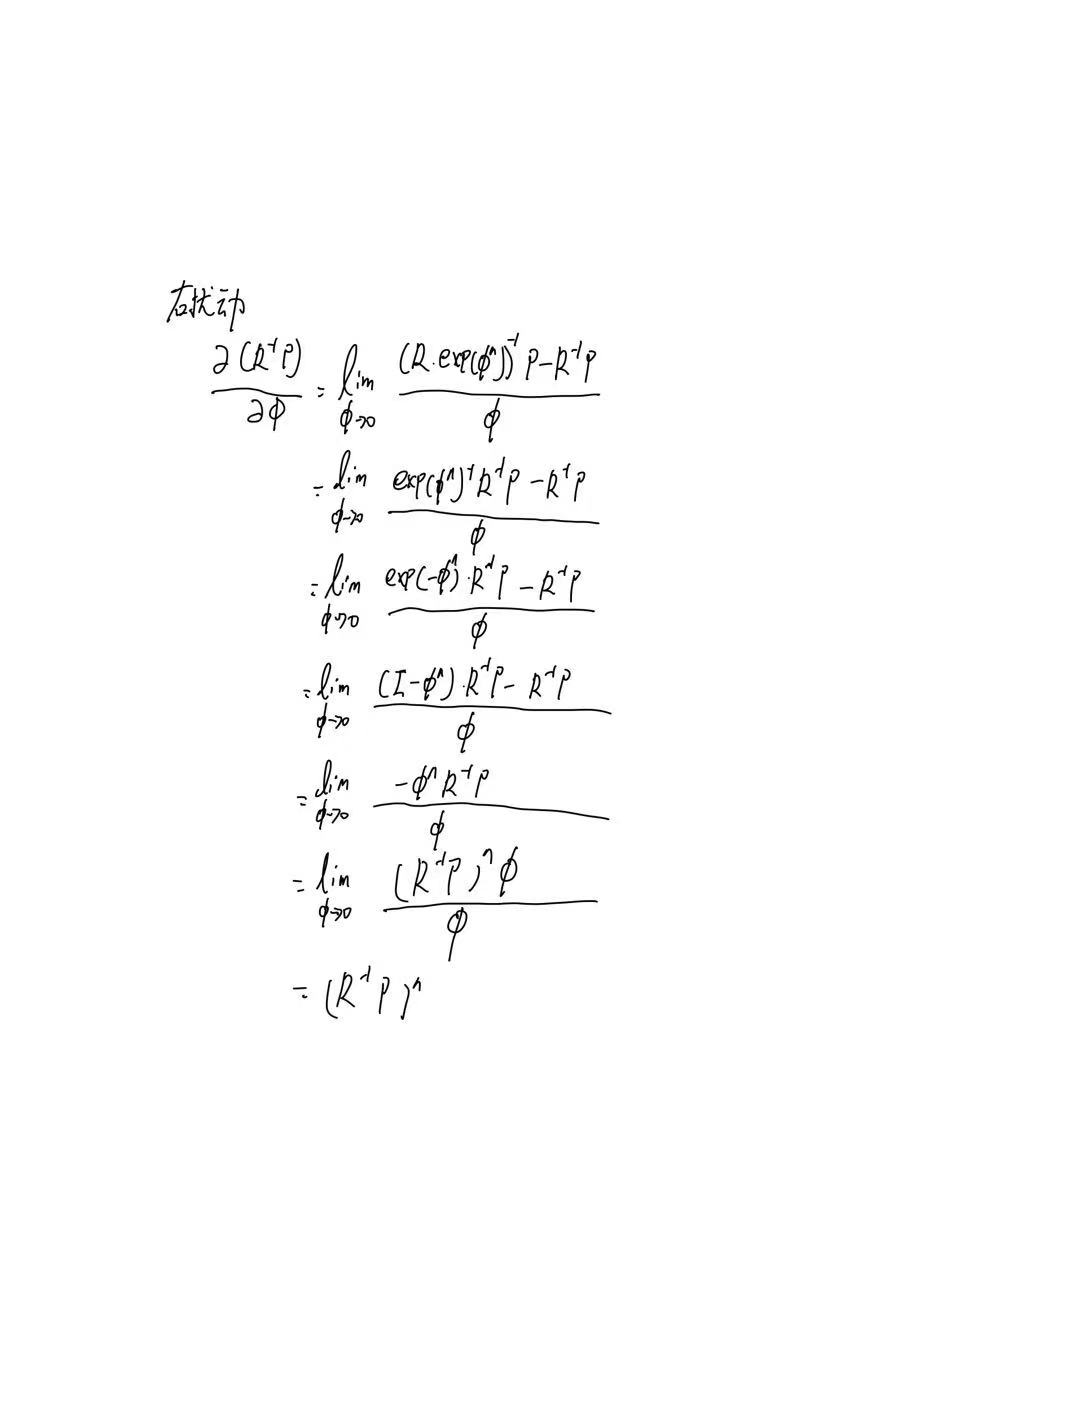 右扰动
∂(R⁻¹P)/∂φ = lim φ→0 ((R·exp(φ^))⁻¹P − R⁻¹P)/φ
= lim φ→0 (exp(φ^)⁻¹R⁻¹P − R⁻¹P)/φ
= lim φ→0 (exp(−φ^)·R⁻¹P − R⁻¹P)/φ
= lim φ→0 ((I−φ^)·R⁻¹P − R⁻¹P)/φ
= lim φ→0 (−φ^R⁻¹P)/φ
= lim φ→0 ((R⁻¹P)^φ)/φ
= (R⁻¹P)^